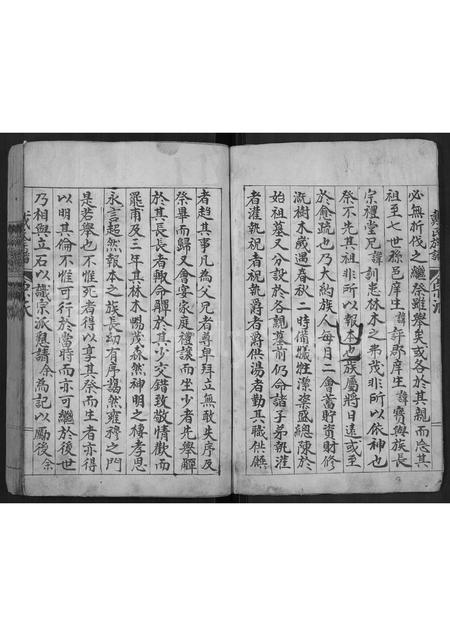 必無折伐之繼祭雖舉矣或各於其親而忘其
祖至七世孫邑庠生諱評郡庠生諱賓與族長
宗禮堂兄諱訓患林木之弗茂非所以依神也
祭不先其祖非所以報本也族屬將日遠或至
於愈疏也乃大約族人每月二會蓄貯資財修
流樹木威遇春秋二時備犧牲潔粢盛總陳於
始祖墓又分設於各親墓前仍命諸子弟執灌
者灌執祝者祝執爵者爵供湯者勤其職供饌
者趨其事凡為父兄者尊卑拜立無敢失序及
祭畢而歸又會宴家庭禮讓而坐少者先舉觶
於其長長者輙命觶於其少交錯致敬情歡而
罷甫及三年其林木暢茂森然神明之棲孝思
永言超然報本之族長幼有序藹然雍穆之門
是若舉也不惟死者得以享其祭而生者亦得
以明其倫不惟可行於當時而亦可繼於後世
乃相與立石以識宗派懇請余為記以勵後余